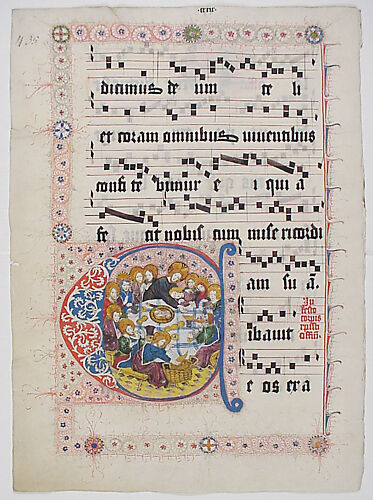 dicimus de um celi
et coram omnibus viventibus
confi te bimur e i qui a
fe cit nobis cum mise ricordi
am su ā
In
festo
corporis
cristi
offm̄
ibavit
e os era